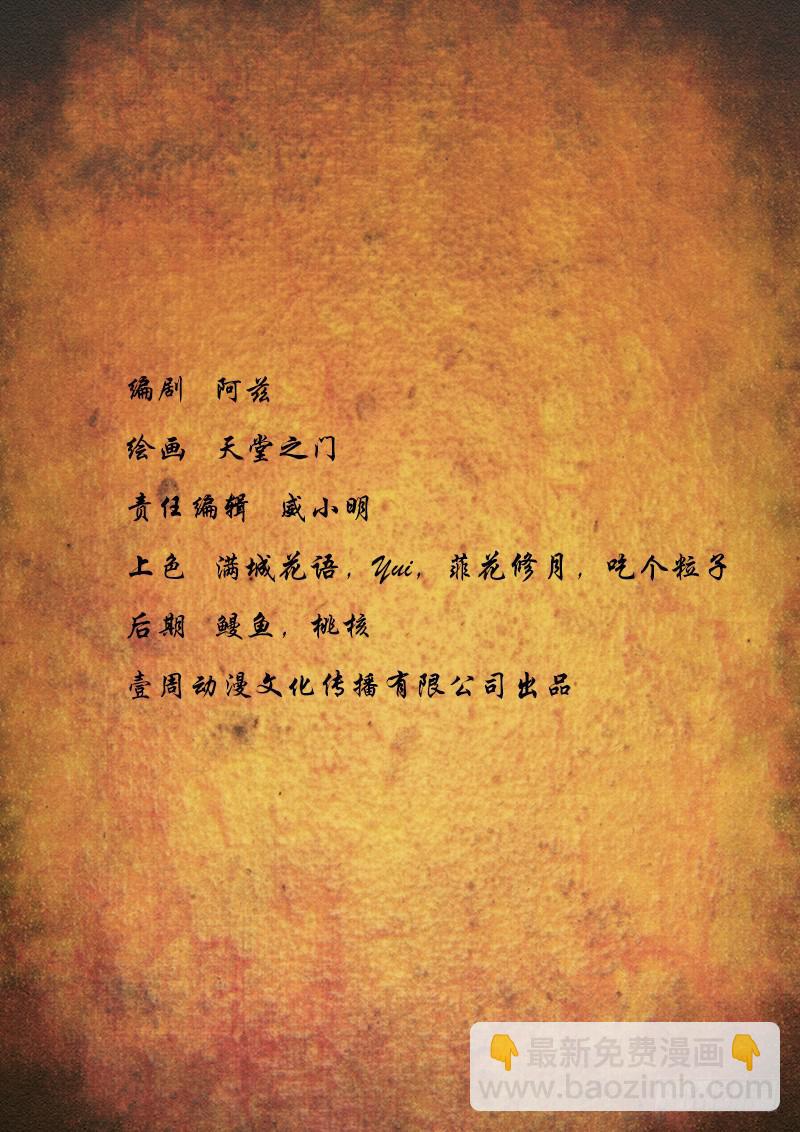 编剧 阿兹
绘画 天堂之门
责任编辑 威小明
上色 满城花语，Yui，菲花修月，吃个粒子
后期 鳗鱼，桃核
壹周动漫文化传播有限公司出品
👇最新免费漫画👇
www.baozimh.com